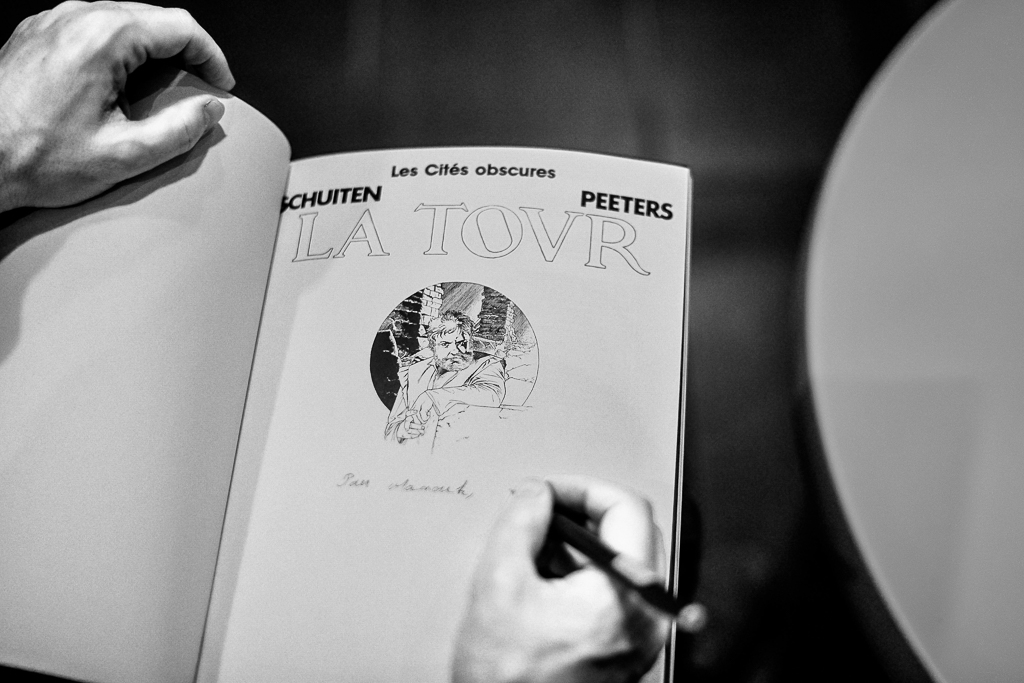 Les Cités obscures
SCHUITEN PEETERS
LA TOVR
Pour